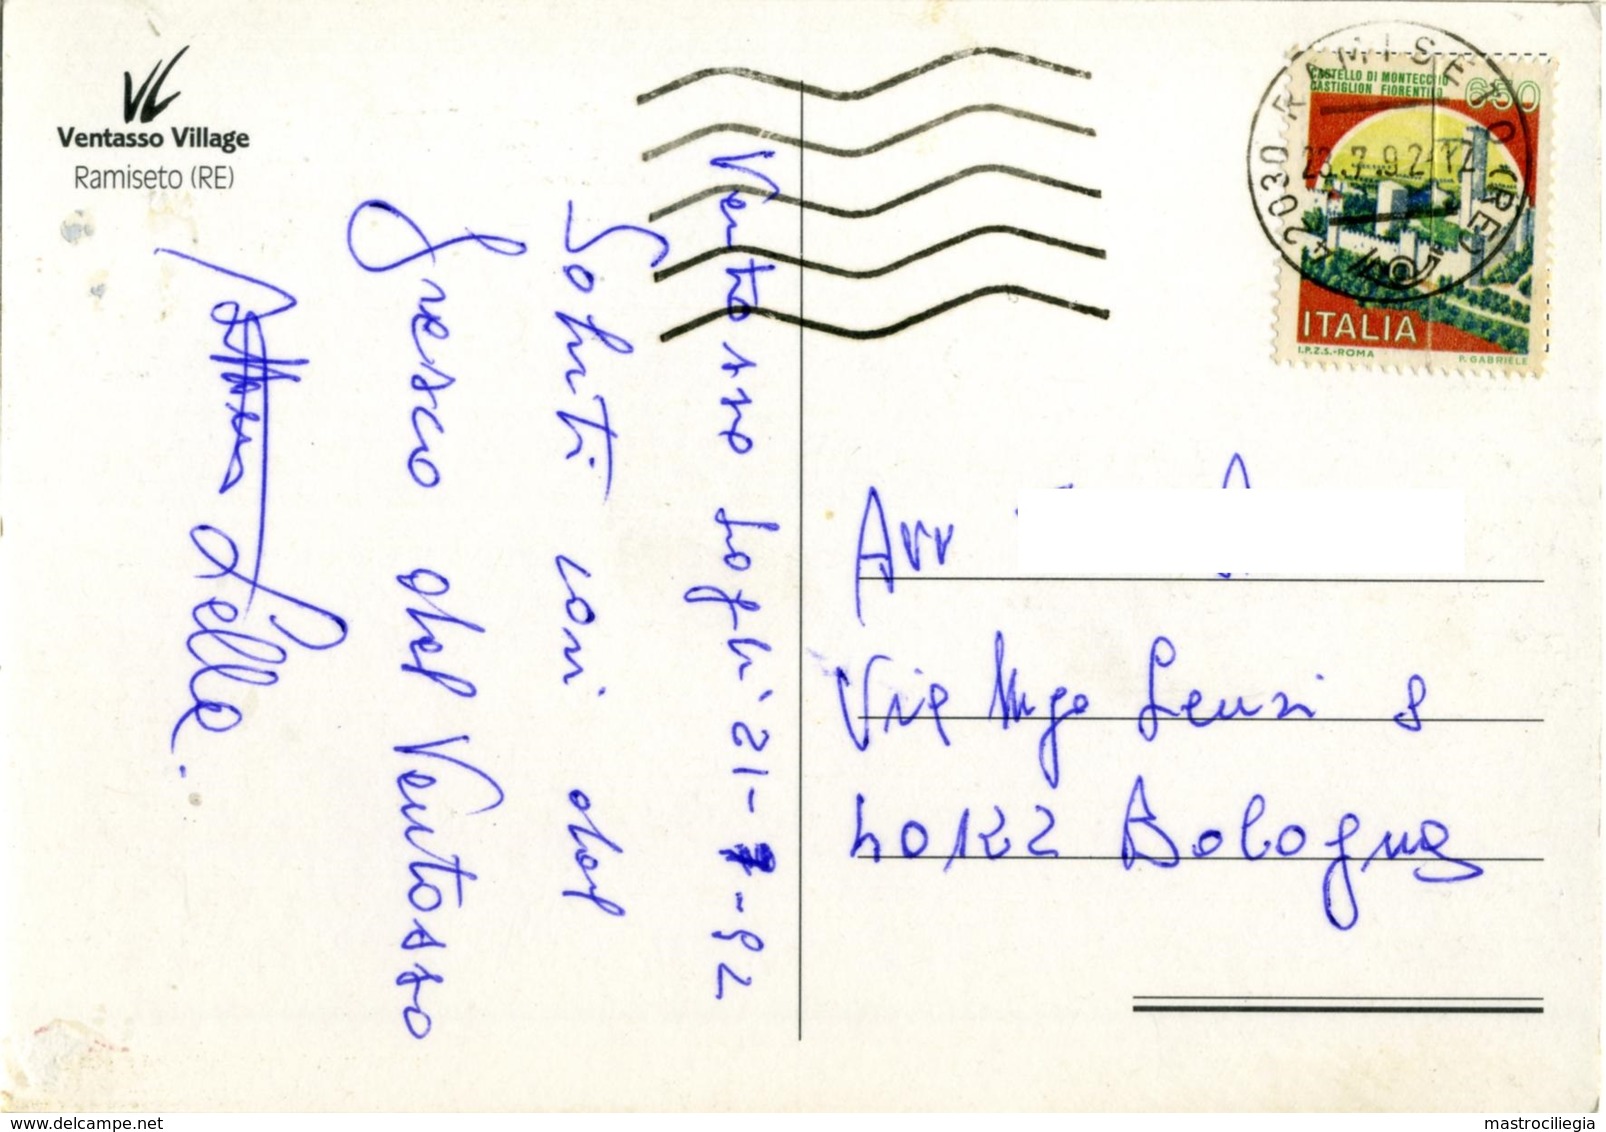 Ventasso Village
Ramiseto (RE)
Ventasso Laghi 21-7-92
Saluti coni dal
fresco del Ventasso
Lella
42030 RAMISETO (RE)
28.7.92-12
CASTELLO DI MONTECCHIO
CASTIGLION FIORENTINO
650
ITALIA
I.P.Z.S.-ROMA P. GABRIELE
Avv
Via Ugo Lenzi 8
40122 Bologna
www.delcampe.net
mastrociliegia